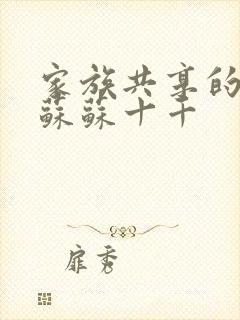 家族共享的
蘇蘇十十
扉秀